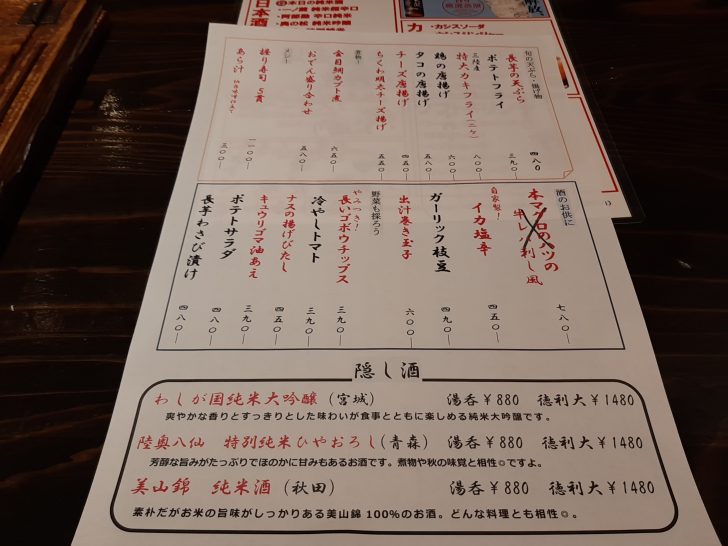 日本酒
本日の純米酒
カ
・カシスソーダ
旬の天ぷら・揚げ物
長芋の天ぷら 四八〇
ポテトフライ 三九〇
三陸産
特大カキフライ(二ケ) 八〇〇
鶏の唐揚げ 六〇〇
タコの唐揚げ 五八〇
チーズ唐揚げ 四五〇
ちくわ明太チーズ揚げ 五五〇
煮物!
金目鯛カブト煮 六五〇
おでん盛り合わせ 五八〇
〆メシ
握り寿司 5貫 一一〇〇
あら汁 三〇〇
酒のお供に
本マグロのハツの
牛レバ刺し風 七八〇
自家製!
イカ塩辛 四五〇
ガーリック枝豆 四九〇
出汁巻き玉子 六〇〇
野菜も採ろう
やみつき?
長いゴボウチップス 三九〇
冷やしトマト 三九〇
ナスの揚げびたし 四五〇
キュウリゴマ油あえ 三九〇
ポテトサラダ 四八〇
長芋わさび漬け 四八〇
隠し酒
わしが国純米大吟醸(宮城) 湯呑¥880 徳利大¥1480
爽やかな香りとすっきりとした味わいが食事とともに楽しめる純米大吟醸です。
陸奥八仙 特別純米ひやおろし(青森) 湯呑¥880 徳利大¥1480
芳醇な旨みがたっぷりでほのかに甘みもあるお酒です。煮物や秋の味覚と相性◎ですよ。
美山錦 純米酒(秋田) 湯呑¥880 徳利大¥1480
素朴だがお米の旨味がしっかりある美山錦100%のお酒。どんな料理とも相性◎。